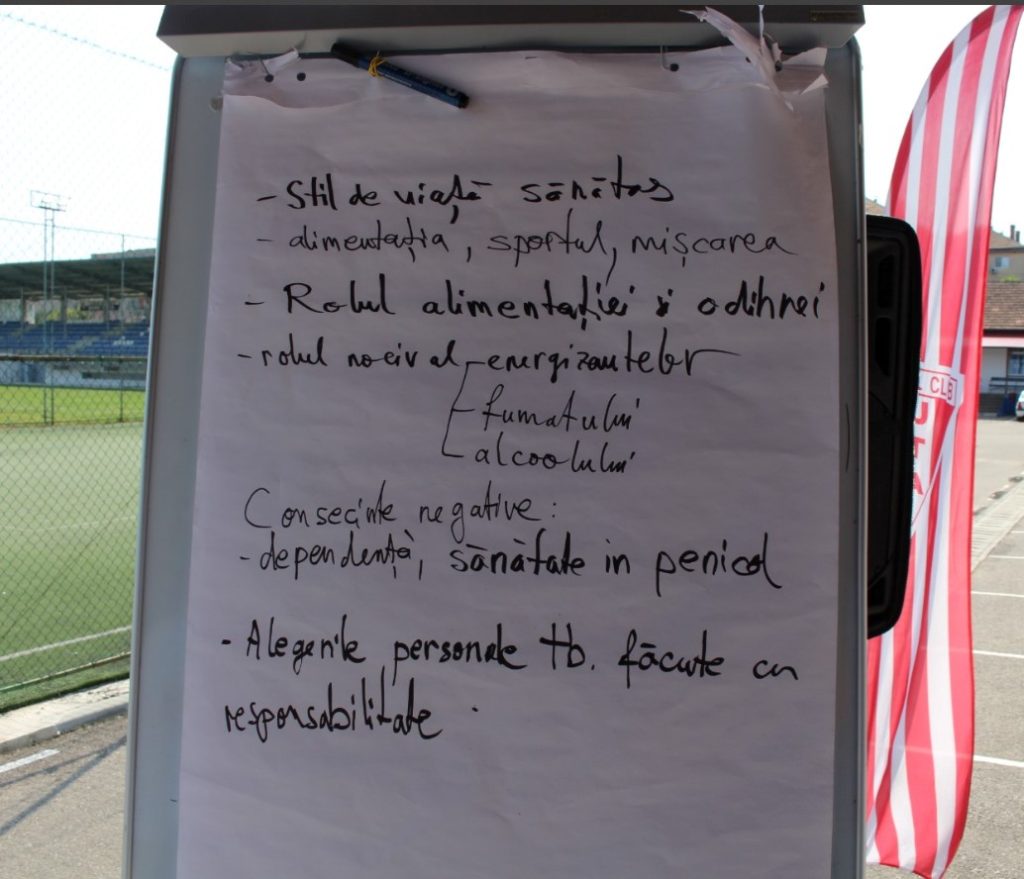 - Stil de viață sănătos
- alimentația, sportul, mișcarea
- Rolul alimentației și odihnei
- rolul nociv al - energizantelor
- fumatului
- alcoolului
Consecințe negative:
- dependență, sănătate in pericol
- Alegerile personale tb. făcute cu
responsabilitate.
CLB